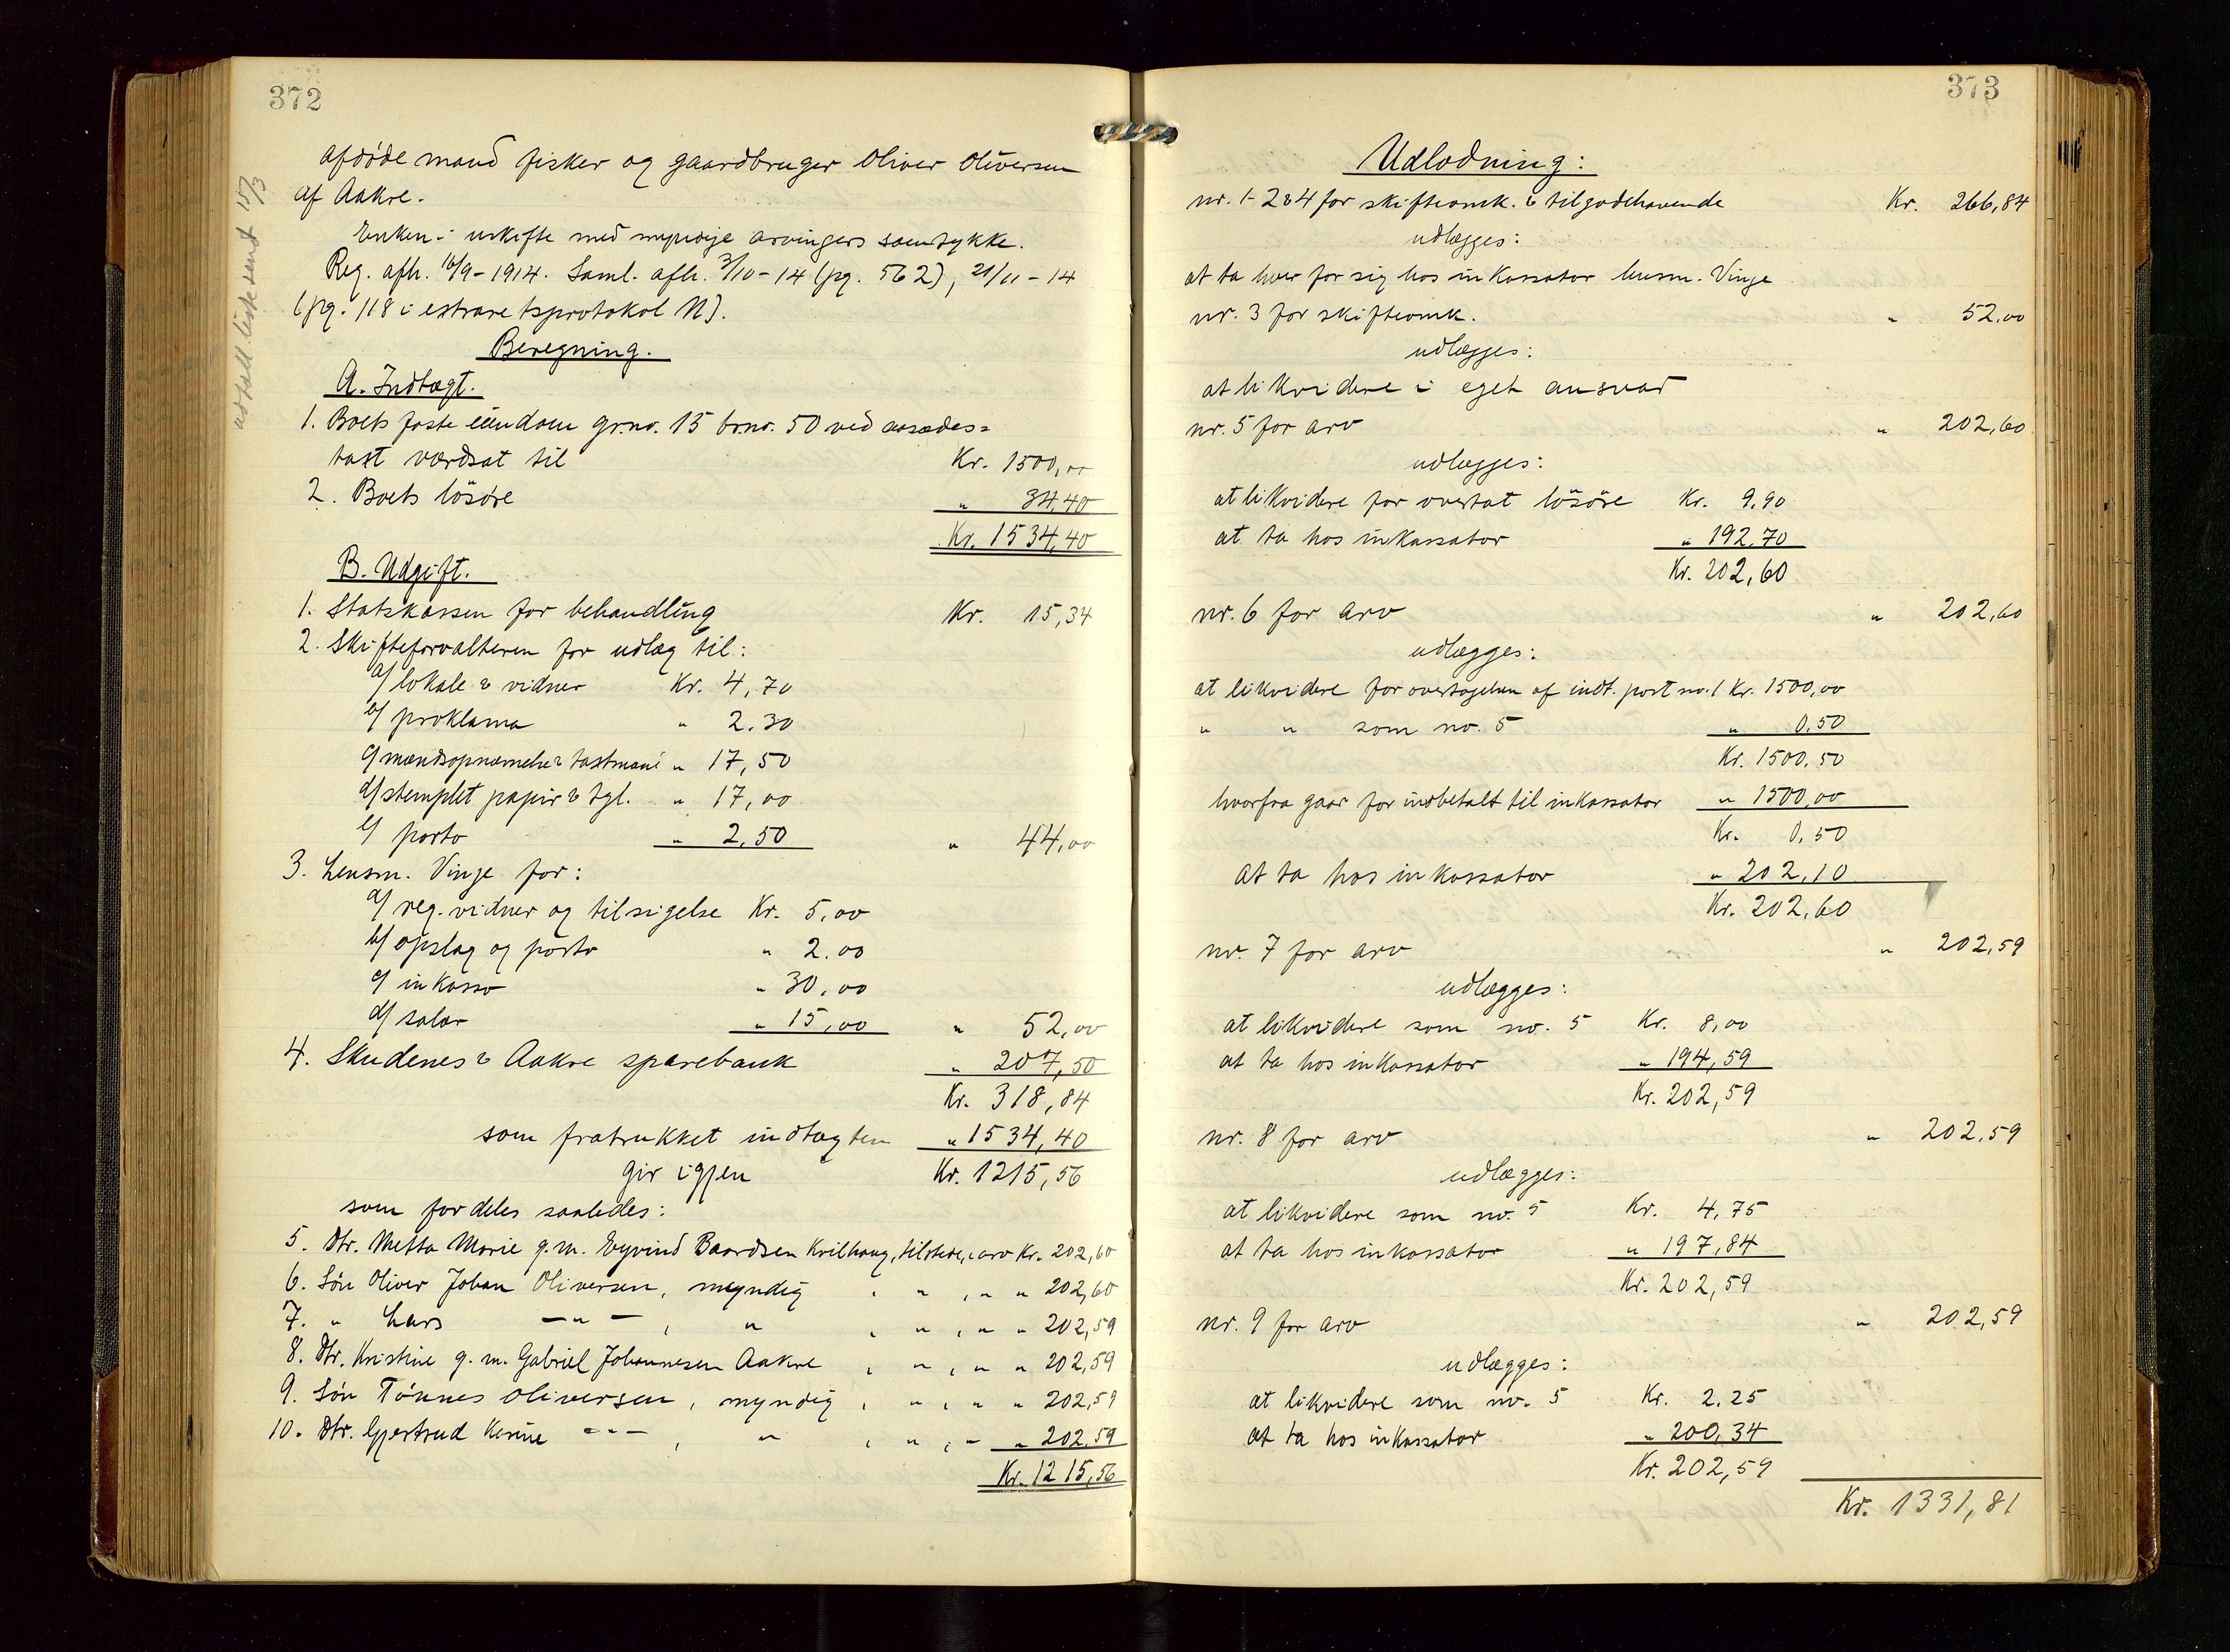 372
afdøde mand fisker og gaardbruger Oliver Oliversen
af Aakre.
Enken i uskifte med myndige arvingers samtykke.
Reg. afh. 16/9-1914. Saml. afh. 3/10-14 (pg. 562), 21/11-14
(pg. 118 i extraretsprotokol N).
Beregning.
A. Indtægt.
1. Boets faste eiendom gr.no. 15 br.no. 50 ved aasædes=
taxt værdsat til Kr. 1500,00
2. Boets løsøre " 34,40
Kr. 1534,40
B. Udgift.
1. Statskassen for behandling Kr. 15,34
2. Skifteforvalteren for udlæg til:
a/ lokale & vidner Kr. 4,70
b/ proklama " 2.30
c/ mandsopnævnelse & taxtmænd " 17,50
d/ stemplet papir & tgl. " 17,00
e/ porto " 2,50 " 44,00
3. Lensm. Vinge for:
a/ reg. vidner og tilsigelse Kr. 5,00
b/ opslag og porto " 2.00
c/ inkasso " 30,00
d/ salær " 15,00 " 52,00
4. Skudenes & Aakre sparebank " 207,50
Kr. 318,84
som fratrukket indtægten " 1534,40
gir igjen Kr. 1215,56
som fordeles saaledes:
5. Dtr. Metta Marie g.m. Eyvind Baardsen Kvilhaug, tilstede, i arv Kr. 202,60
6. Søn Oliver Johan Oliversen, myndig , " , " " 202,60
7. " Lars —"— , " , " , " " 202,59
8. Dtr. Kristine g.m. Gabriel Johannesen Aakre , " , " " 202,59
9. Søn Tønnes Oliversen, myndig , " , " " 202,59
10. Dtr. Gjertrud —"— , " , " , " " 202,59
Kr. 1215,56
373
Udlodning:
nr. 1-2 & 4 for skifteomk. & tilgodehavende Kr. 266,84
udlægges:
at ta hver for sig hos inkassator lensm. Vinge
nr. 3 for skifteomk. " 52,00
udlægges:
at likvidere i eget ansvar
nr. 5 for arv " 202,60
udlægges:
at likvidere for overtat løsøre Kr. 9,90
at ta hos inkassator " 192,70
Kr. 202,60
nr. 6 for arv " 202,60
udlægges:
at likvidere for overtagelsen af indt. post no. 1 Kr. 1500,00
" " som no. 5 " 0,50
Kr. 1500,50
hvorfra gaar for indbetalt til inkassator " 1500,00
Kr. 0,50
at ta hos inkassator " 202,10
Kr. 202,60
nr. 7 for arv " 202,59
udlægges:
at likvidere som no. 5 Kr. 8,00
at ta hos inkassator " 194,59
Kr. 202,59
nr. 8 for arv " 202,59
udlægges:
at likvidere som no. 5 Kr. 4,75
at ta hos inkassator " 197,84
Kr. 202,59
nr. 9 for arv " 202,59
udlægges:
at likvidere som no. 5 Kr. 2,25
at ta hos inkassator " 200,34
Kr. 202,59
Kr. 1331,81